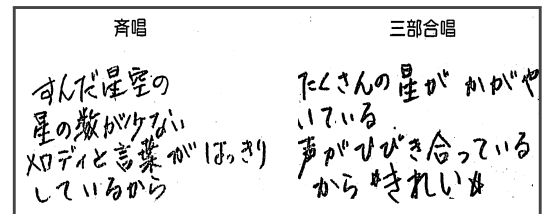 斉唱
すんだ星空の
星の数が少ない
メロディと言葉がはっきり
しているから
三部合唱
たくさんの星が かがや
いている
声がひびき合っている
から〝きれい〟